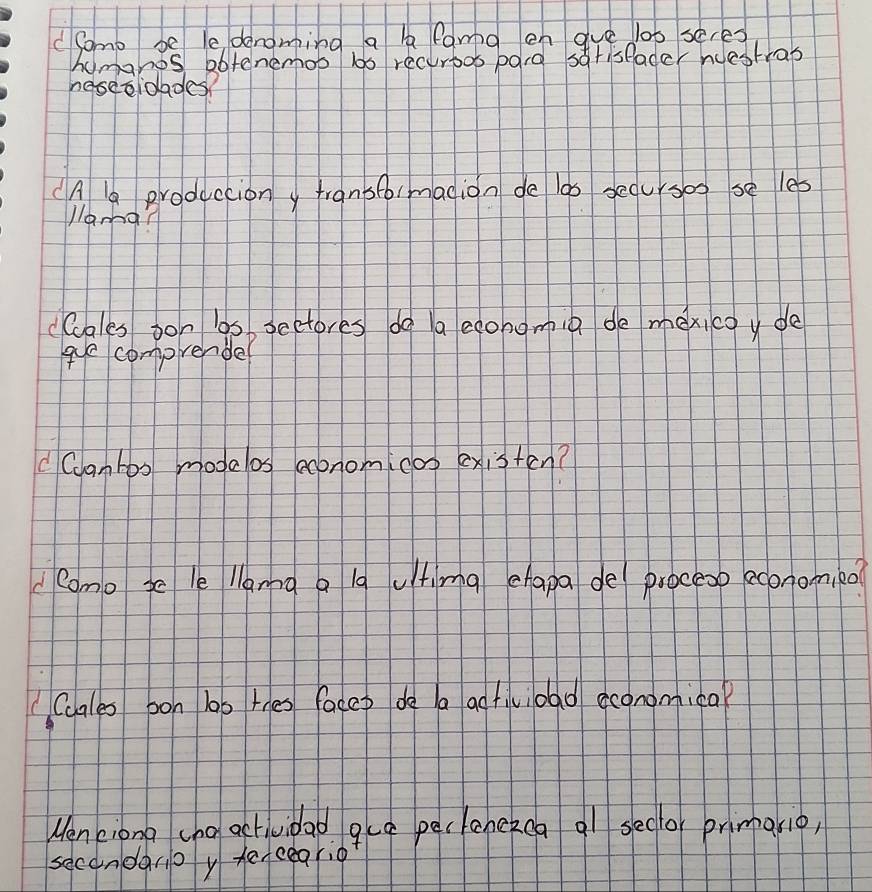 ¿Como se le denomina a la forma en que los seres
humanos obtenemos los recursos para satisfacer nuestras
neseceidades?
¿A la produccion y transformación de los recursos se les
llama?
¿Cuales son los sectores de la economia de méxico y de
que comprende?
¿Cuantos modelos economicos existen?
¿Como se le llama a la ultima etapa del proceso economico?
¿Cuales son las tres faces de la actividad economica?
Menciona una actividad que pertenezca al sector primario,
secundario y terceario